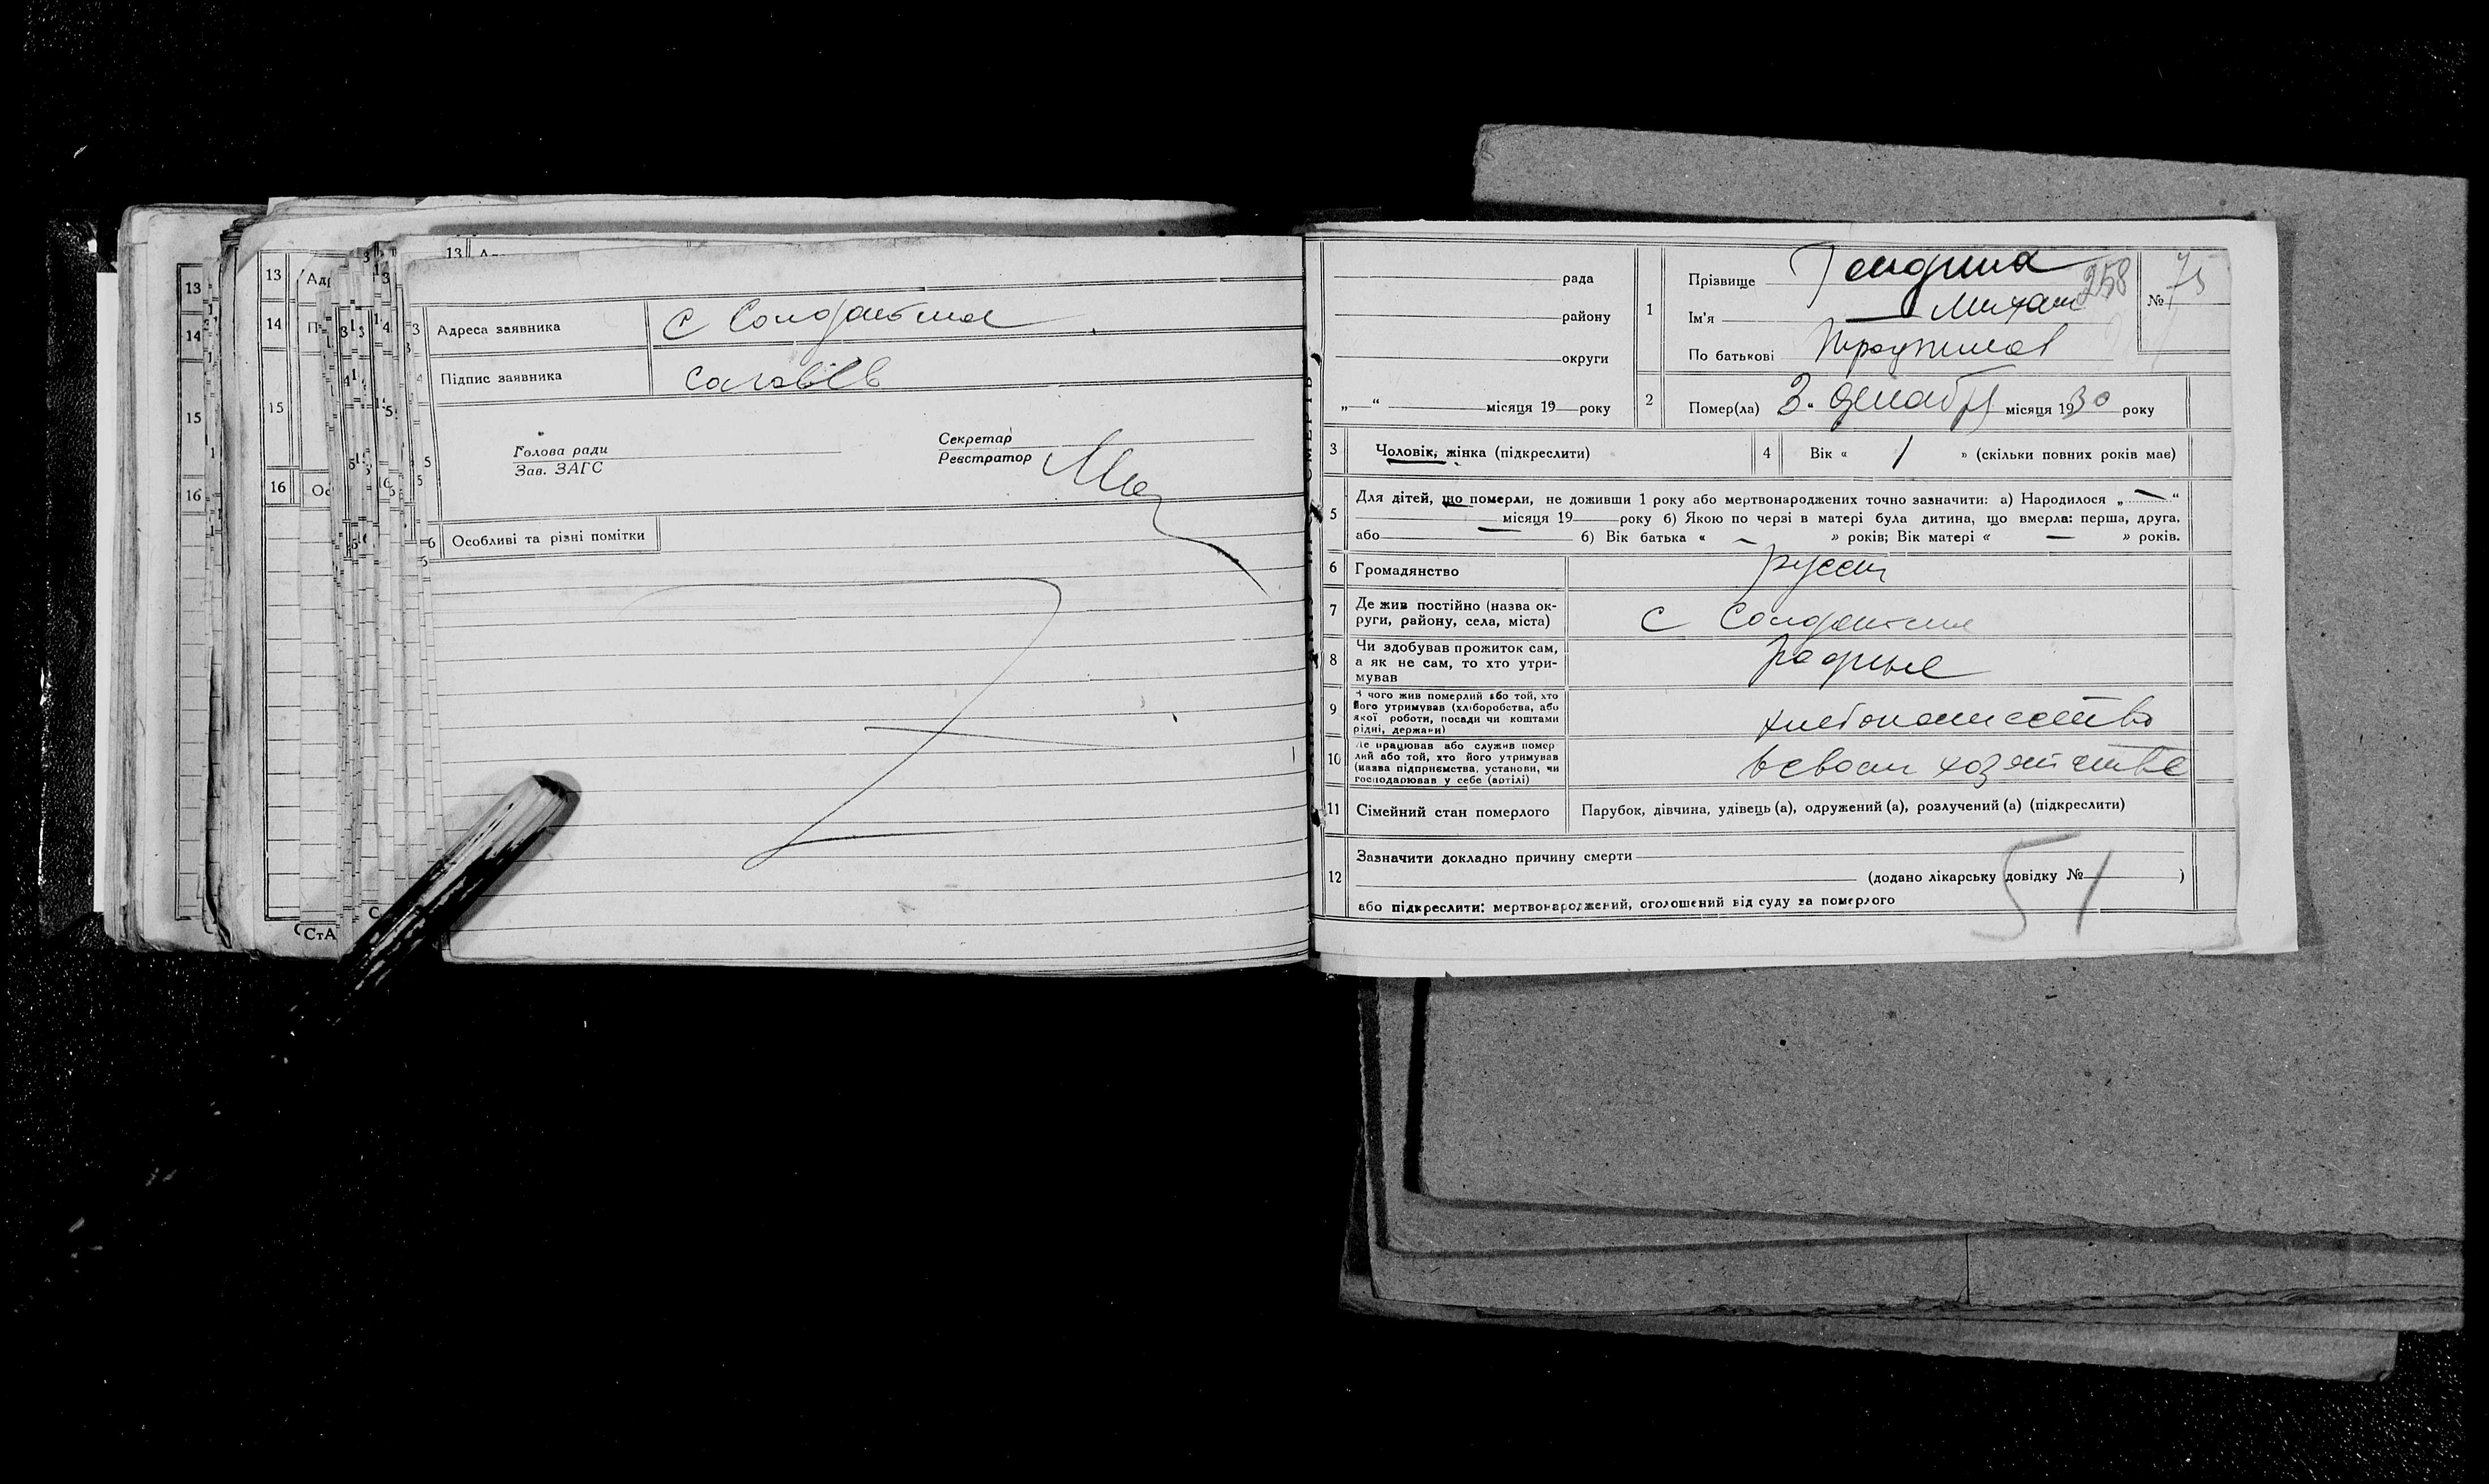 13
14
15
16
13
14
15
16
Адреса заявника с Солдатское
Підпис заявника
Голова ради
Зав. ЗАГС
Секретар
Реєстратор
Особливі та різні помітки
рада
району
округи
„ “ місяця 19 року
1
Прізвище
258
№ 75
Ім'я Михаил
По батькові
2
Помер(ла) 3 „ декабря місяця 1930 року
3 Чоловік, жінка (підкреслити)
4 Вік « 1 » (скільки повних років має)
5
Для дітей, що померли, не доживши 1 року або мертвонароджених точно зазначити: а) Народилося „ — “
місяця 19 — року б) Якою по черзі в матері була дитина, що вмерла: перша, друга,
або б) Вік батька « – » років; Вік матері « — » років.
6 Громадянство русск
7 Де жив постійно (назва ок-
руги, району, села, міста)
с Солдатское
8
Чи здобував прожиток сам,
а як не сам, то хто утри-
мував
родные
9
З чого жив померлий або той, хто
його утримував (хліборобства, або
якої роботи, посади чи коштами
рідні, держави)
хлебопашество
10
Де працював або служив помер
лий або той, хто його утримував
(назва підприємства, установи, чи
господарював у себе (артілі)
в своем хозяйстве
11 Сімейний стан померлого Парубок, дівчина, удівець (а), одружений (а), розлучений (а) (підкреслити)
12
Зазначити докладно причину смерти
(додано лікарську довідку № )
або підкреслити: мертвонароджений, оголошений від суду за померлого
51